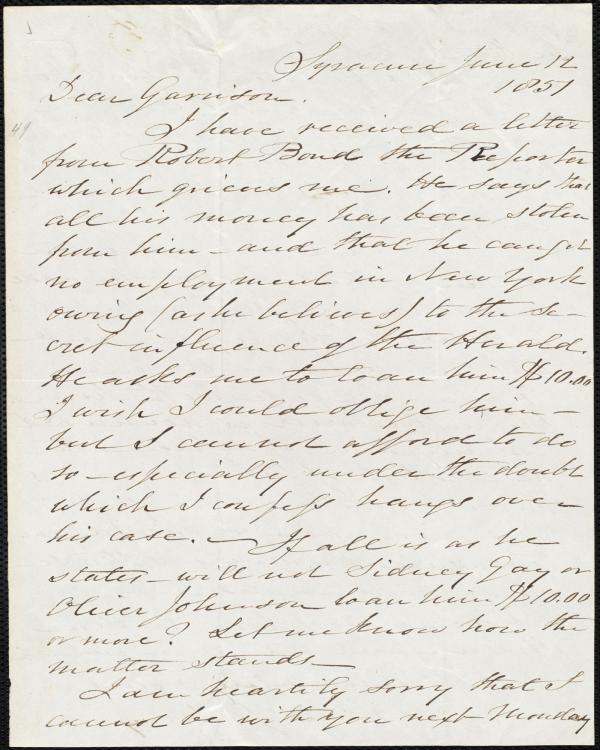 Syracuse June 12
1851
Dear Garrison.
49
I have received a letter
from Robert Bond the Reporter
which grieves me. He says that
all his money has been stolen
from him - and that he can get
no employment in New York
owing (as he believes) to the se-
cret influence of the Herald.
He asks me to loan him $10.00
I wish I could oblige him -
but I cannot afford to do
so - especially under the doubt
which I confess hangs over
his case. - If all is as he
states - will not Sidney Gay or
Oliver Johnson loan him $10.00
or more? Let me know how the
matter stands -
I am heartily sorry that I
cannot be with you next Monday